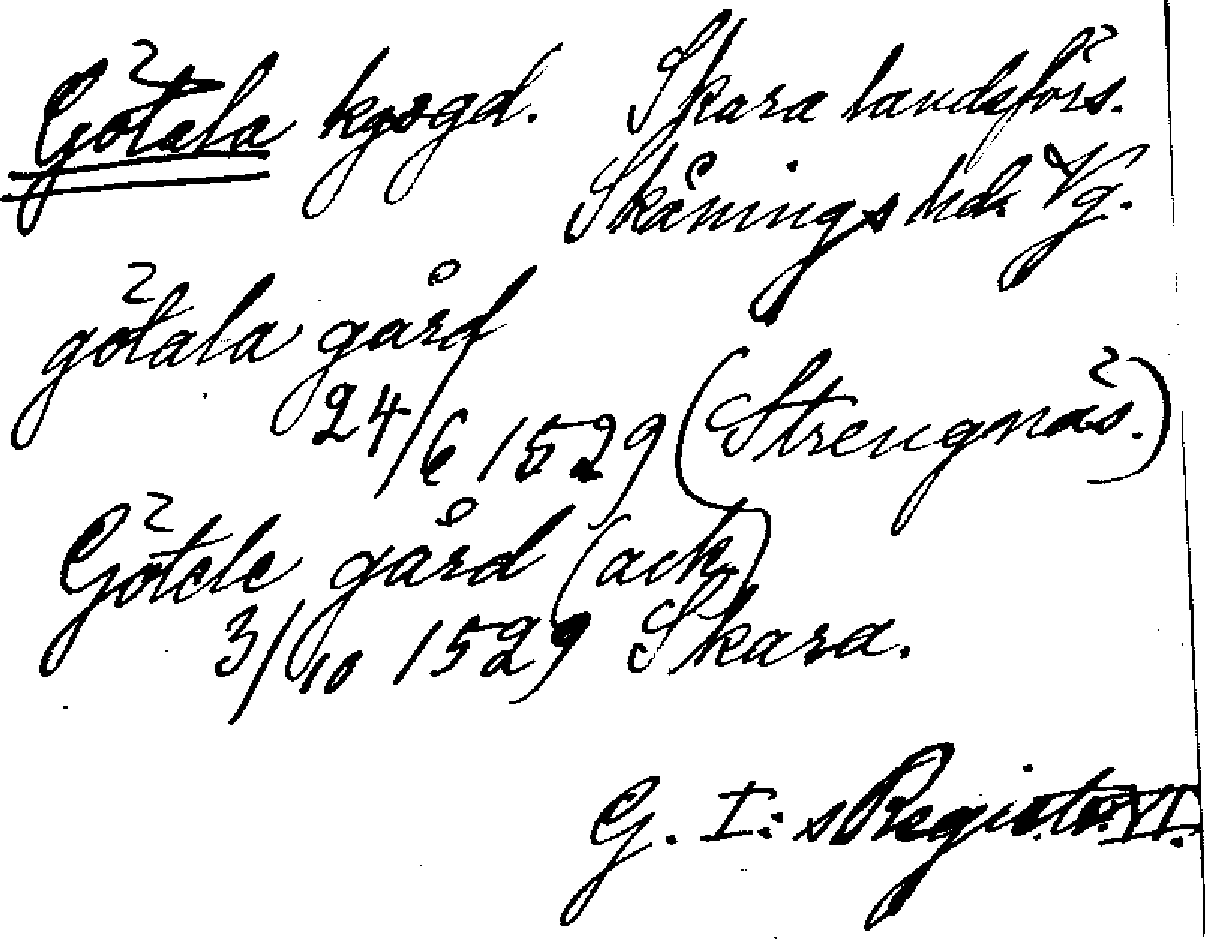 Götala kgsgd. Skara landsförs.
Skånings hd. Vg.
götala gård
24/6 1529 (Strengnäs.)
Götele gård (ack)
3/10 1529 Skara.
G. I:s Registr. VI.